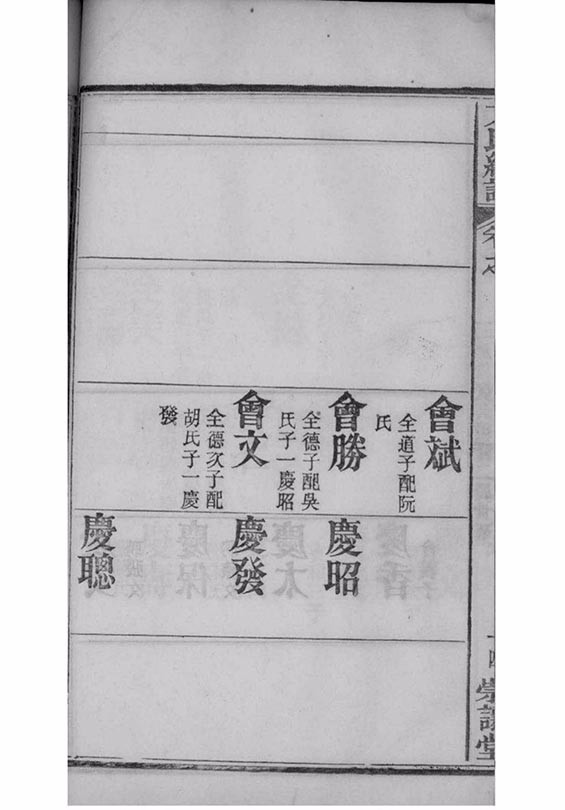 會斌
全道子配阮
氏
會勝
全德子配吳
氏子一慶昭
會文
全德次子配
胡氏子一慶
發
慶昭
慶發
慶聰
崇讓堂